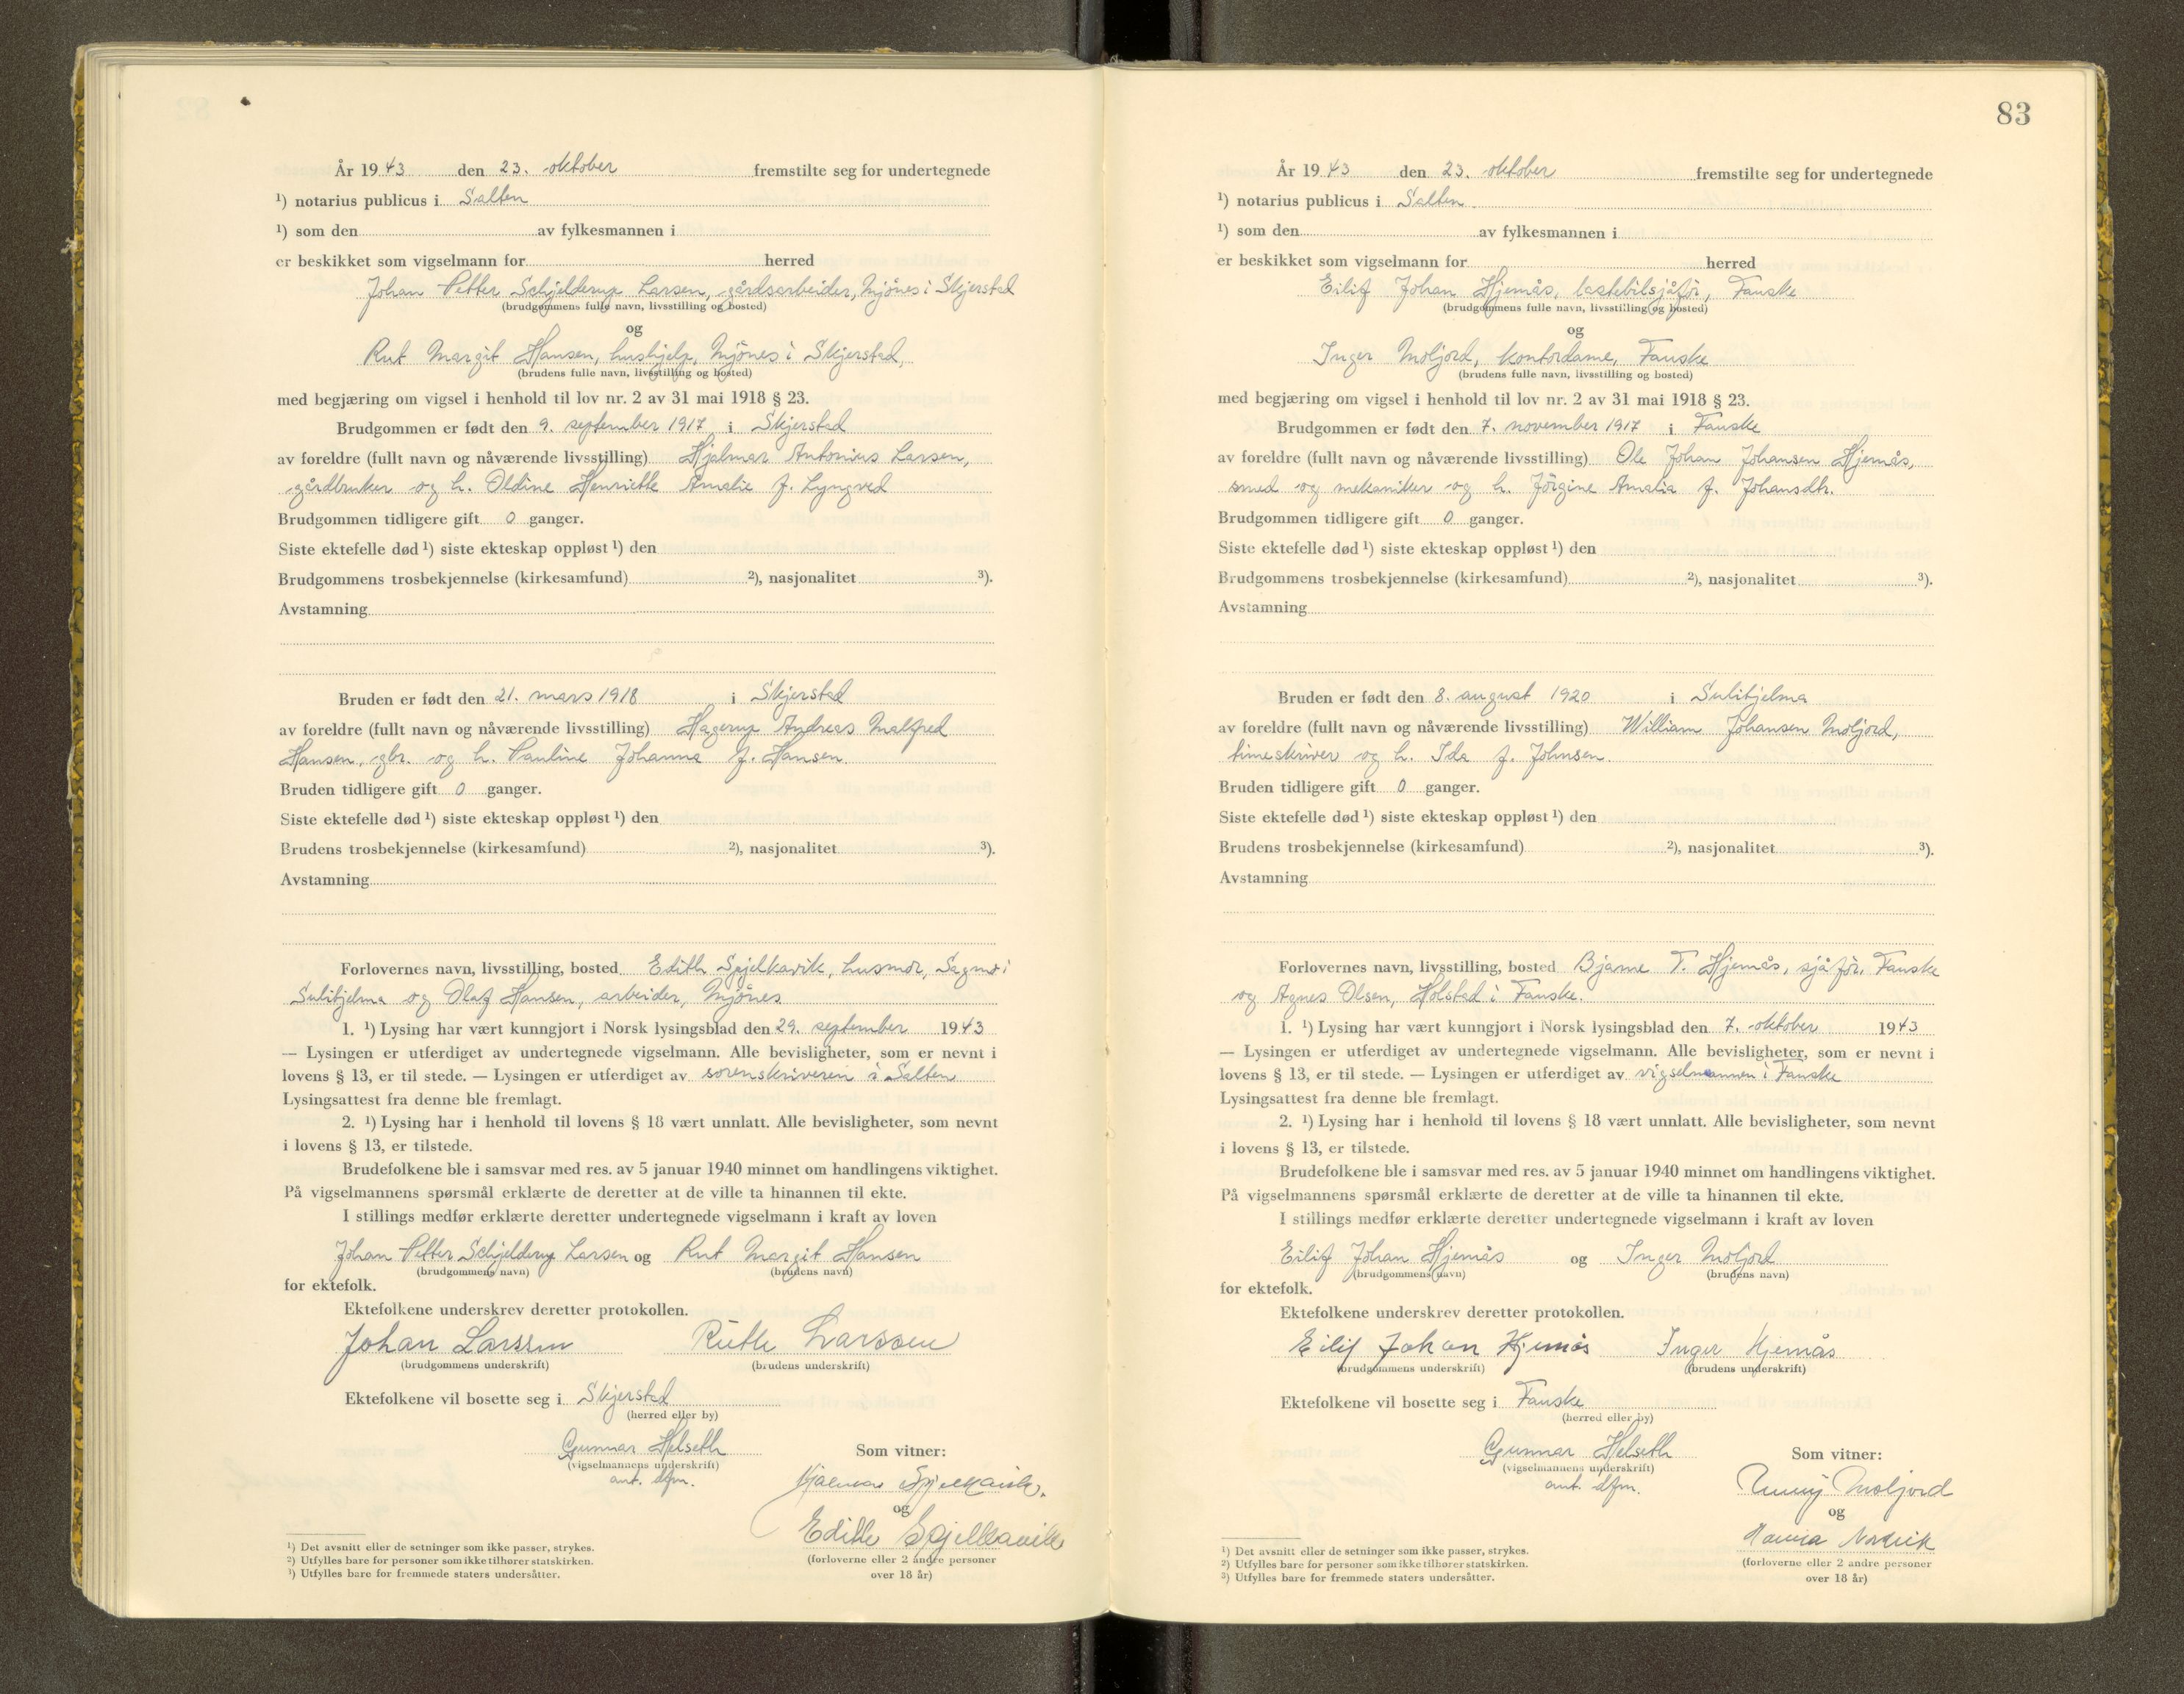 År 1943 den 23. oktober fremstilte seg for undertegnede
¹) notarius publicus i Salten
¹) som den av fylkesmannen i
er beskikket som vigselmann for herred
Johan Petter Schjelderup Larsen, gårdsarbeider, Mjönes i Skjerstad
(brudgommens fulle navn, livsstilling og bosted)
og
Rut Margit Hansen, hushjelp, Mjönes i Skjerstad,
(brudens fulle navn, livsstilling og bosted)
med begjæring om vigsel i henhold til lov nr. 2 av 31 mai 1918 § 23.
Brudgommen er født den 9. september 1917 i Skjerstad
av foreldre (fullt navn og nåværende livsstilling) Hjalmar Antonius Larsen,
gårdbruker og h. Oldine Henriette Amalie f. Lyngved
Brudgommen tidligere gift 0 ganger.
Siste ektefelle død ¹) siste ekteskap oppløst ¹) den
Brudgommens trosbekjennelse (kirkesamfund) ²), nasjonalitet ³).
Avstamning
Bruden er født den 21. mars 1918 i Skjerstad
av foreldre (fullt navn og nåværende livsstilling) Hagerup Andreas Malfred
Hansen, gbr. og h. Pauline Johanna f. Hansen
Bruden tidligere gift 0 ganger.
Siste ektefelle død ¹) siste ekteskap oppløst ¹) den
Brudens trosbekjennelse (kirkesamfund) ²), nasjonalitet ³).
Avstamning
Forlovernes navn, livsstilling, bosted Edith Spjelkavik, husmor, Sagmo i
Sulitjelma og Olaf Hansen, arbeider, Mjönes
1. ¹) Lysing har vært kunngjort i Norsk lysingsblad den 29. september 1943
— Lysingen er utferdiget av undertegnede vigselmann. Alle bevisligheter, som er nevnt i
lovens § 13, er til stede. — Lysingen er utferdiget av sorenskriveren i Salten
Lysingsattest fra denne ble fremlagt.
2. ¹) Lysing har i henhold til lovens § 18 vært unnlatt. Alle bevisligheter, som nevnt
i lovens § 13, er tilstede.
Brudefolkene ble i samsvar med res. av 5 januar 1940 minnet om handlingens viktighet.
På vigselmannens spørsmål erklærte de deretter at de ville ta hinannen til ekte.
I stillings medfør erklærte deretter undertegnede vigselmann i kraft av loven
Johan Petter Schjelderup Larsen og Rut Margit Hansen
(brudgommens navn) (brudens navn)
for ektefolk.
Ektefolkene underskrev deretter protokollen.
Johan Larssen Ruth Larssen
(brudgommens underskrift) (brudens underskrift)
Ektefolkene vil bosette seg i Skjerstad
(herred eller by)
Gunnar Helseth Som vitner:
(vigselmannens underskrift)
ant. dfm.
Hjalmar Spjelkavik.
og
Edith Spjelkavik
(forloverne eller 2 andre personer
over 18 år)
¹) Det avsnitt eller de setninger som ikke passer, strykes.
²) Utfylles bare for personer som ikke tilhører statskirken.
³) Utfylles bare for fremmede staters undersåtter.
83
År 1943 den 23. oktober fremstilte seg for undertegnede
¹) notarius publicus i Salten
¹) som den av fylkesmannen i
er beskikket som vigselmann for herred
Eilif Johan Hjemås, lastebilsjåför, Fauske
(brudgommens fulle navn, livsstilling og bosted)
og
Inger Moljord, kontordame, Fauske
(brudens fulle navn, livsstilling og bosted)
med begjæring om vigsel i henhold til lov nr. 2 av 31 mai 1918 § 23.
Brudgommen er født den 7. november 1917 i Fauske
av foreldre (fullt navn og nåværende livsstilling) Ole Johan Johansen Hjemås,
smed og mekaniker og h. Jörgine Amalia f. Johansdtr.
Brudgommen tidligere gift 0 ganger.
Siste ektefelle død ¹) siste ekteskap oppløst ¹) den
Brudgommens trosbekjennelse (kirkesamfund) ²), nasjonalitet ³).
Avstamning
Bruden er født den 8. august 1920 i Sulitjelma
av foreldre (fullt navn og nåværende livsstilling) William Johansen Moljord,
timeskriver og h. Ida f. Johnsen.
Bruden tidligere gift 0 ganger.
Siste ektefelle død ¹) siste ekteskap oppløst ¹) den
Brudens trosbekjennelse (kirkesamfund) ²), nasjonalitet ³).
Avstamning
Forlovernes navn, livsstilling, bosted Bjarne T. Hjemås, sjåför, Fauske
og Agnes Olsen, Holstad i Fauske.
1. ¹) Lysing har vært kunngjort i Norsk lysingsblad den 7. oktober 1943
— Lysingen er utferdiget av undertegnede vigselmann. Alle bevisligheter, som er nevnt i
lovens § 13, er til stede. — Lysingen er utferdiget av vigselmannen i Fauske
Lysingsattest fra denne ble fremlagt.
2. ¹) Lysing har i henhold til lovens § 18 vært unnlatt. Alle bevisligheter, som nevnt
i lovens § 13, er tilstede.
Brudefolkene ble i samsvar med res. av 5 januar 1940 minnet om handlingens viktighet.
På vigselmannens spørsmål erklærte de deretter at de ville ta hinannen til ekte.
I stillings medfør erklærte deretter undertegnede vigselmann i kraft av loven
Eilif Johan Hjemås og Inger Moljord
(brudgommens navn) (brudens navn)
for ektefolk.
Ektefolkene underskrev deretter protokollen.
Eilif Johan Hjemås Inger Hjemås
(brudgommens underskrift) (brudens underskrift)
Ektefolkene vil bosette seg i Fauske
(herred eller by)
Gunnar Helseth Som vitner:
(vigselmannens underskrift)
ant. dfm.
Moljord
og
(forloverne eller 2 andre personer
over 18 år)
¹) Det avsnitt eller de setninger som ikke passer, strykes.
²) Utfylles bare for personer som ikke tilhører statskirken.
³) Utfylles bare for fremmede staters undersåtter.